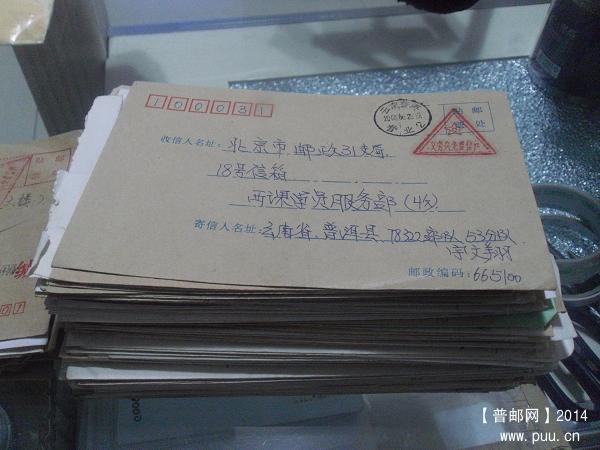 100031
贴 邮
票 处
义务兵免费信件
收信人名址: 北京市邮政31支局
18号信箱
西课学员服务部(收)
寄信人名址: 云南省 普洱县 78322部队 53分队
邮政编码: 665100
【普邮网】2014
www.puu.cn